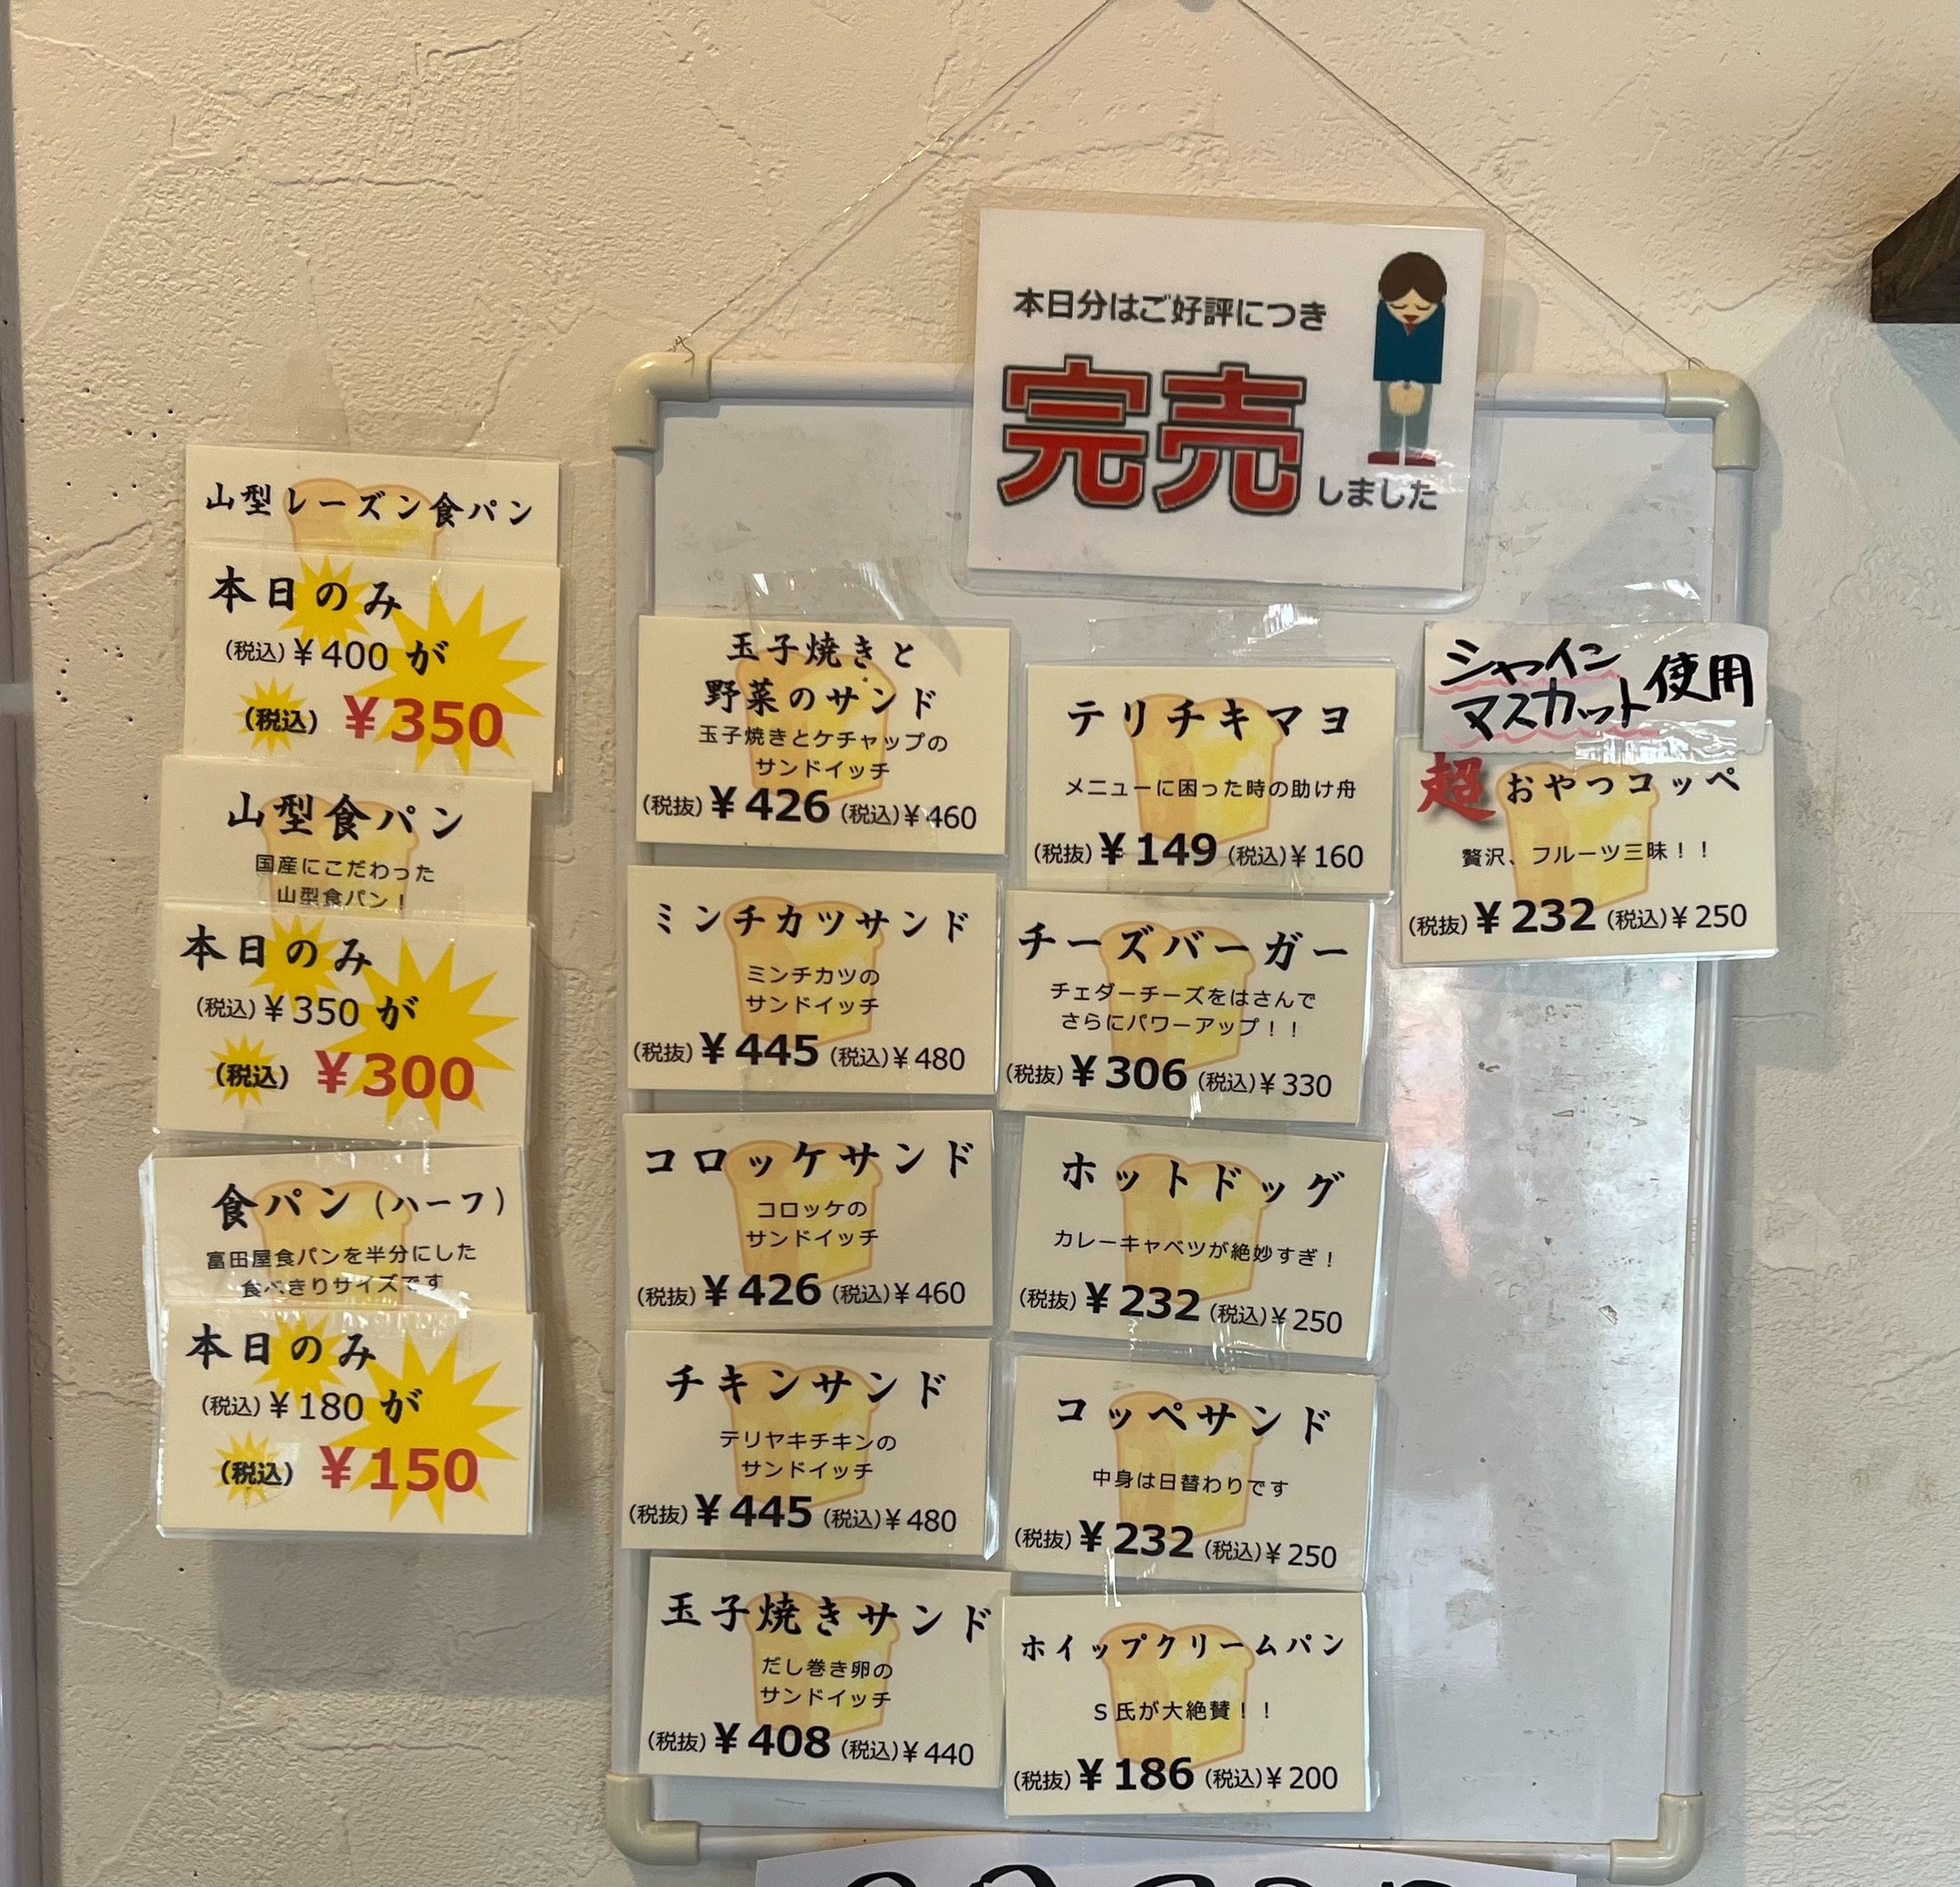 本日分はご好評につき
完売
しました
山型レーズン食パン
本日のみ
(税込)¥400が
(税込) ¥350
山型食パン
国産にこだわった
山型食パン!
本日のみ
(税込)¥350が
(税込) ¥300
食パン(ハーフ)
富田屋食パンを半分にした
食べきりサイズです
本日のみ
(税込)¥180が
(税込) ¥150
玉子焼きと
野菜のサンド
玉子焼きとケチャップの
サンドイッチ
(税抜)¥426(税込)¥460
ミンチカツサンド
ミンチカツの
サンドイッチ
(税抜)¥445(税込)¥480
コロッケサンド
コロッケの
サンドイッチ
(税抜)¥426(税込)¥460
チキンサンド
テリヤキチキンの
サンドイッチ
(税抜)¥445(税込)¥480
玉子焼きサンド
だし巻き卵の
サンドイッチ
(税抜)¥408(税込)¥440
テリチキマヨ
メニューに困った時の助け舟
(税抜)¥149(税込)¥160
チーズバーガー
チェダーチーズをはさんで
さらにパワーアップ!!
(税抜)¥306(税込)¥330
ホットドッグ
カレーキャベツが絶妙すぎ!
(税抜)¥232(税込)¥250
コッペサンド
中身は日替わりです
(税抜)¥232(税込)¥250
ホイップクリームパン
S氏が大絶賛!!
(税抜)¥186(税込)¥200
シャイン
マスカット使用
超おやつコッペ
贅沢、フルーツ三昧!!
(税抜)¥232(税込)¥250